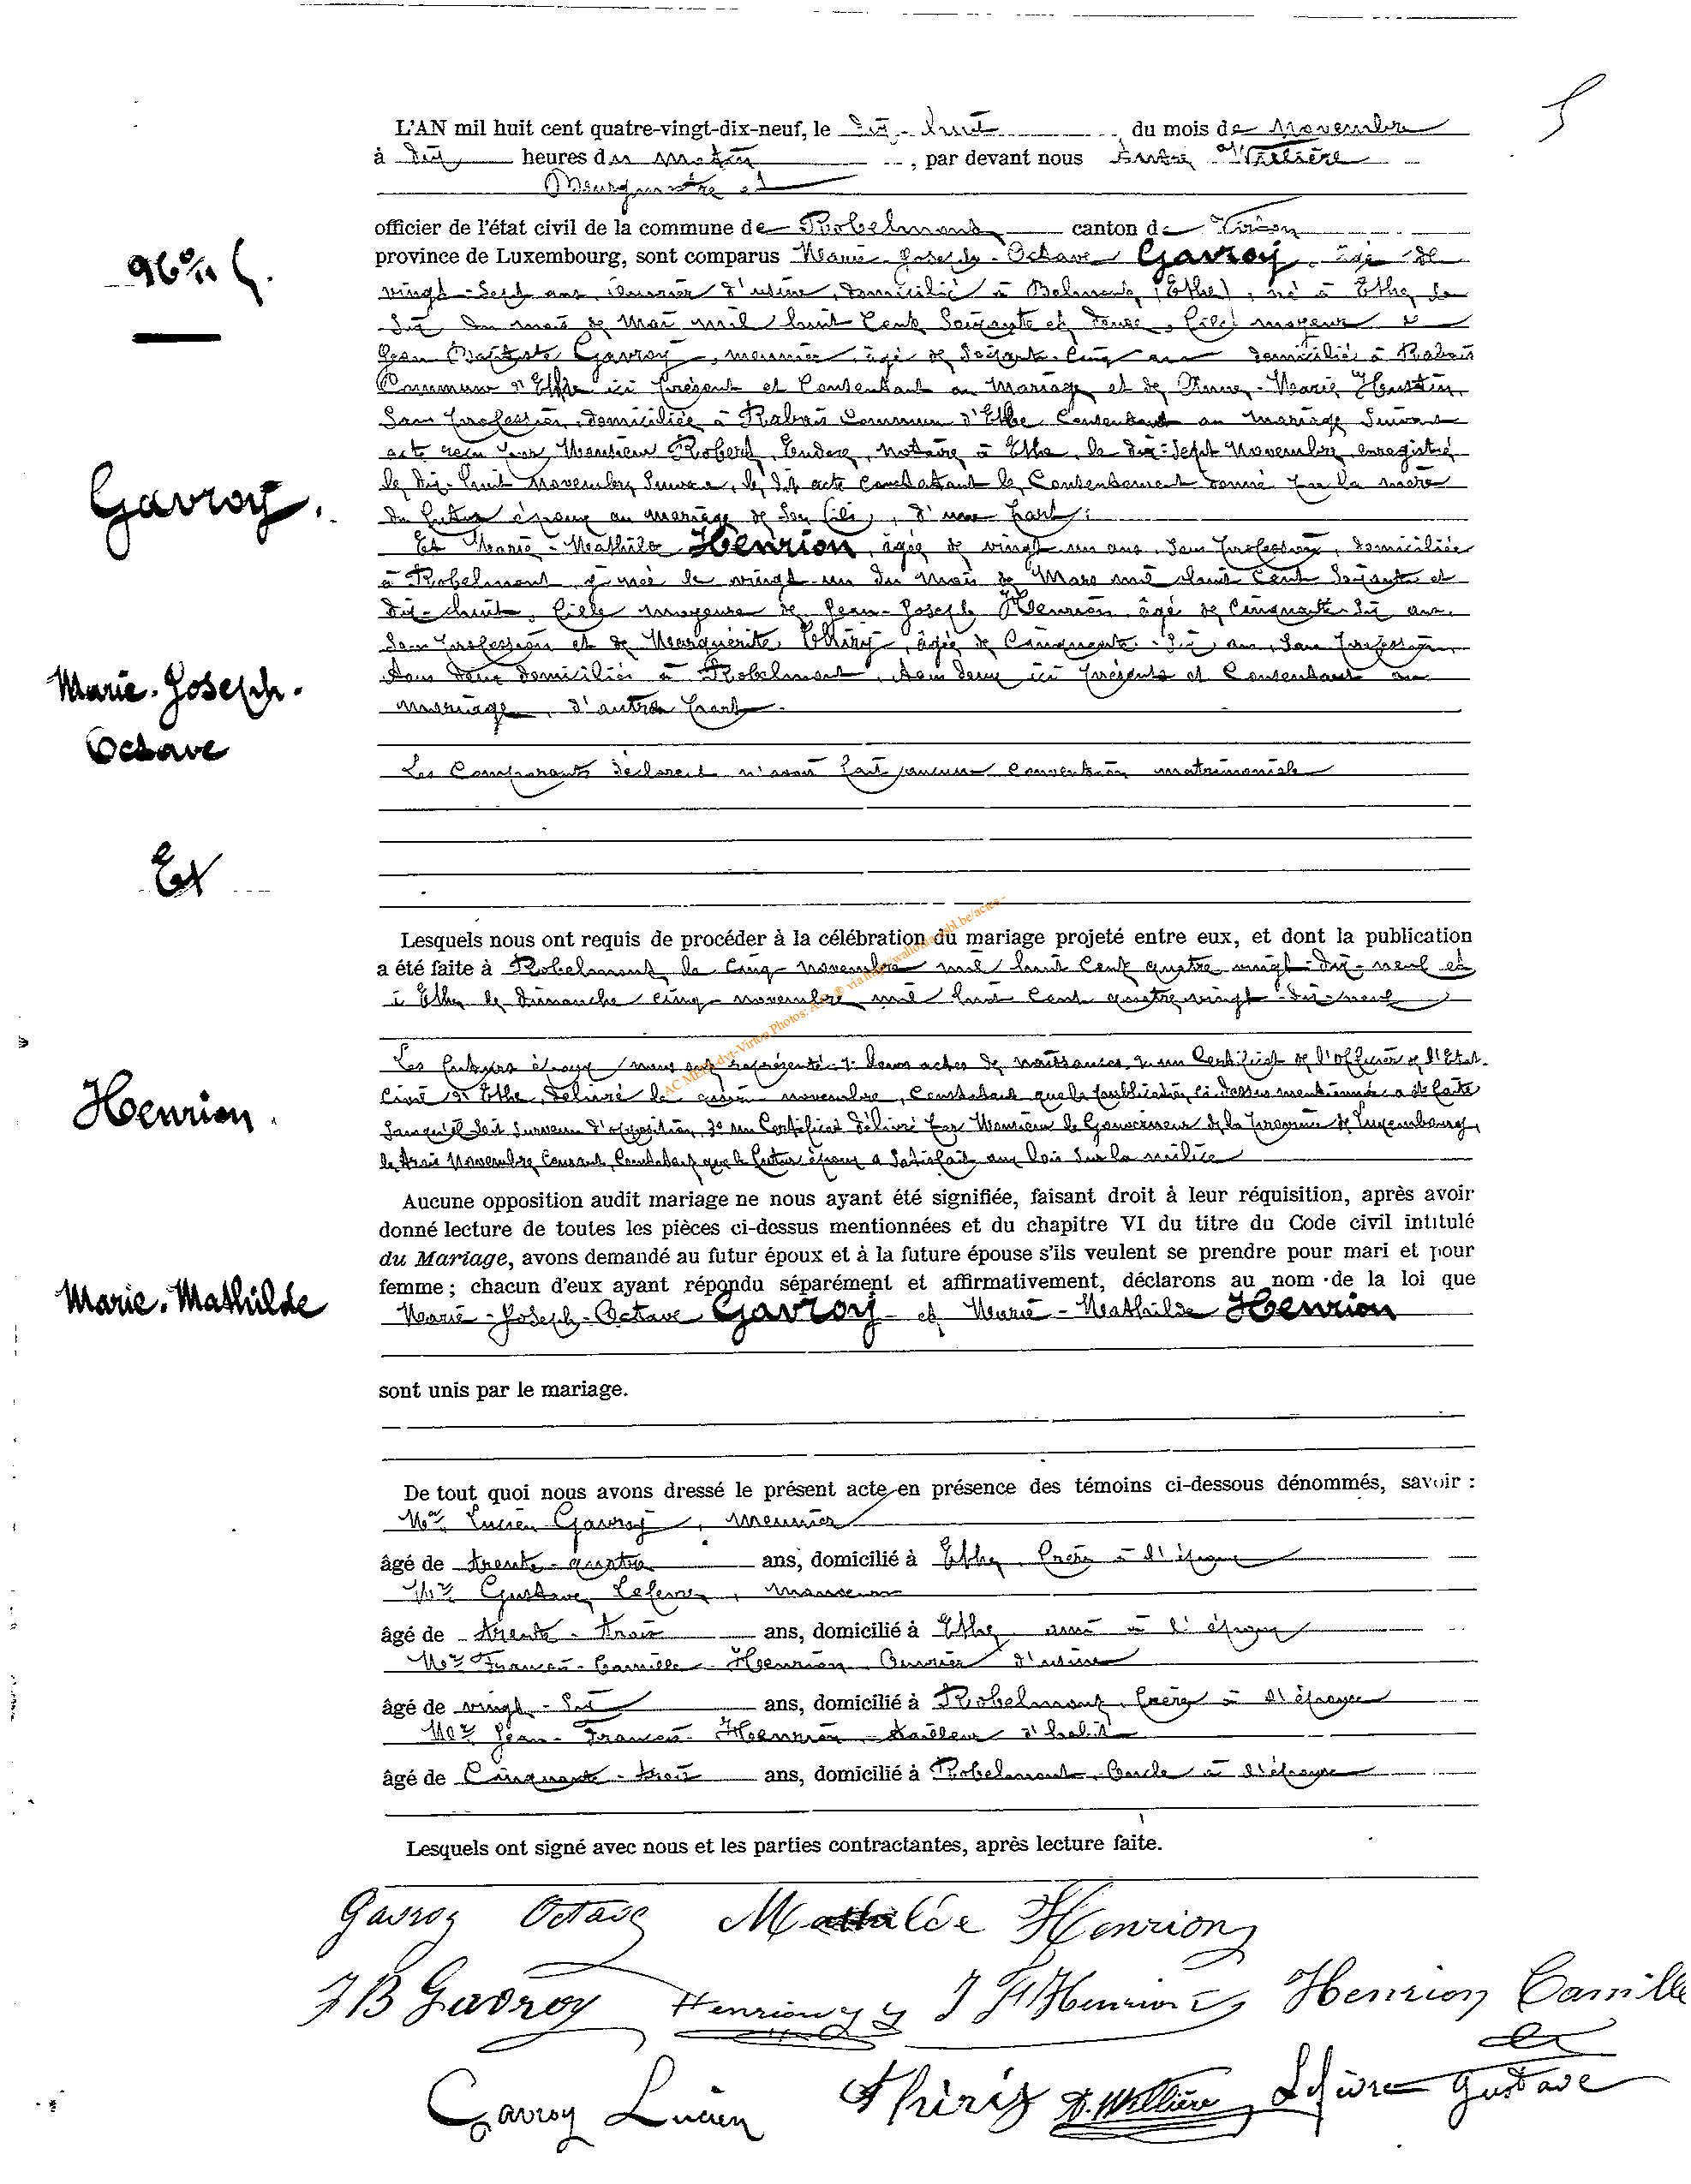 5
L'AN mil huit cent quatre-vingt-dix-neuf, le dix-huit du mois de Novembre
à dix heures du matin, par devant nous Willière
Bourgmestre et
officier de l'état civil de la commune de Robelmont canton de Virton
province de Luxembourg, sont comparus Marie-Joseph-Octave Gavroy, âgé de
vingt-sept ans, ouvrier d'usine, domicilié à Belmont (Ethe), né à Ethe le
dix du mois de Mai mil huit cent soixante et douze, fils majeur de
Jean Baptiste Gavroy, meunier, âgé de soixante-cinq ans domicilié à Rabais
Commune d'Ethe ici présent et consentant au mariage et de Anne-Marie
sans profession, domiciliée à Rabais commune d'Ethe, consentant au mariage suivant
acte reçu par Monsieur Robert, notaire à Ethe, le dix-sept Novembre, enregistré
le dix-huit Novembre suivant, le dit acte constatant le consentement donné par la mère
du futur époux au mariage de son fils, d'une part;
Et Marie-Mathilde Henrion, âgée de vingt un ans, sans profession, domiciliée
à Robelmont, y née le vingt-un du mois de Mars mil huit cent soixante et
dix-huit, fille majeure de Jean-Joseph Henrion âgé de cinquante-six ans,
sans profession et de Marguérite Thiry, âgée de cinquante-six ans, sans profession
tous deux domiciliés à Robelmont, tous deux ici présents et consentant au
mariage, d'autre part.
Les Comparants déclarent n'avoir fait aucune convention matrimoniale
Lesquels nous ont requis de procéder à la célébration du mariage projeté entre eux, et dont la publication
a été faite à Robelmont le cinq novembre mil huit cent quatre vingt-dix-neuf et
à Ethe le dimanche cinq novembre mil huit cent quatre vingt-dix-neuf
Les futurs époux nous ont représenté: 1° leurs actes de naissances, 2° un Certificat de l'officier de l'Etat-
Civil d'Ethe, délivré le novembre, constatant que la publication ci-dessus mentionnée a été faite
sans qu'il soit survenu d'opposition, 3° un Certificat délivré par Monsieur le Gouverneur de la Province de Luxembourg,
le trois Novembre courant, constatant que le futur époux a satisfait aux lois sur la milice
Aucune opposition audit mariage ne nous ayant été signifiée, faisant droit à leur réquisition, après avoir
donné lecture de toutes les pièces ci-dessus mentionnées et du chapitre VI du titre du Code civil intitulé
du Mariage, avons demandé au futur époux et à la future épouse s'ils veulent se prendre pour mari et pour
femme; chacun d'eux ayant répondu séparément et affirmativement, déclarons au nom de la loi que
Marie-Joseph-Octave Gavroy et Marie-Mathilde Henrion
sont unis par le mariage.
De tout quoi nous avons dressé le présent acte en présence des témoins ci-dessous dénommés, savoir :
Mr. Lucien Gavroy, meunier
âgé de trente-quatre ans, domicilié à Ethe, frère à l'époux
Mr. Gustave Lefevre,
âgé de trente-trois ans, domicilié à Ethe, ami à l'époux
Mr. François-Camille-Henrion Ouvrier d'usine
âgé de vingt-six ans, domicilié à Robelmont, frère à l'épouse
Mr. Jean-François-Henrion, tailleur d'habit
âgé de Cinquante-trois ans, domicilié à Robelmont, Oncle à l'épouse
Lesquels ont signé avec nous et les parties contractantes, après lecture faite.
Gavroy Octave Mathilde Henrion
J B Gavroy Henrion J J J F Henrion Henrion Camille
Gavroy Lucien Thiry Willière Lefèvre Gustave
Gavroy.
Marie-Joseph-
Octave
Et
Henrion.
Marie-Mathilde